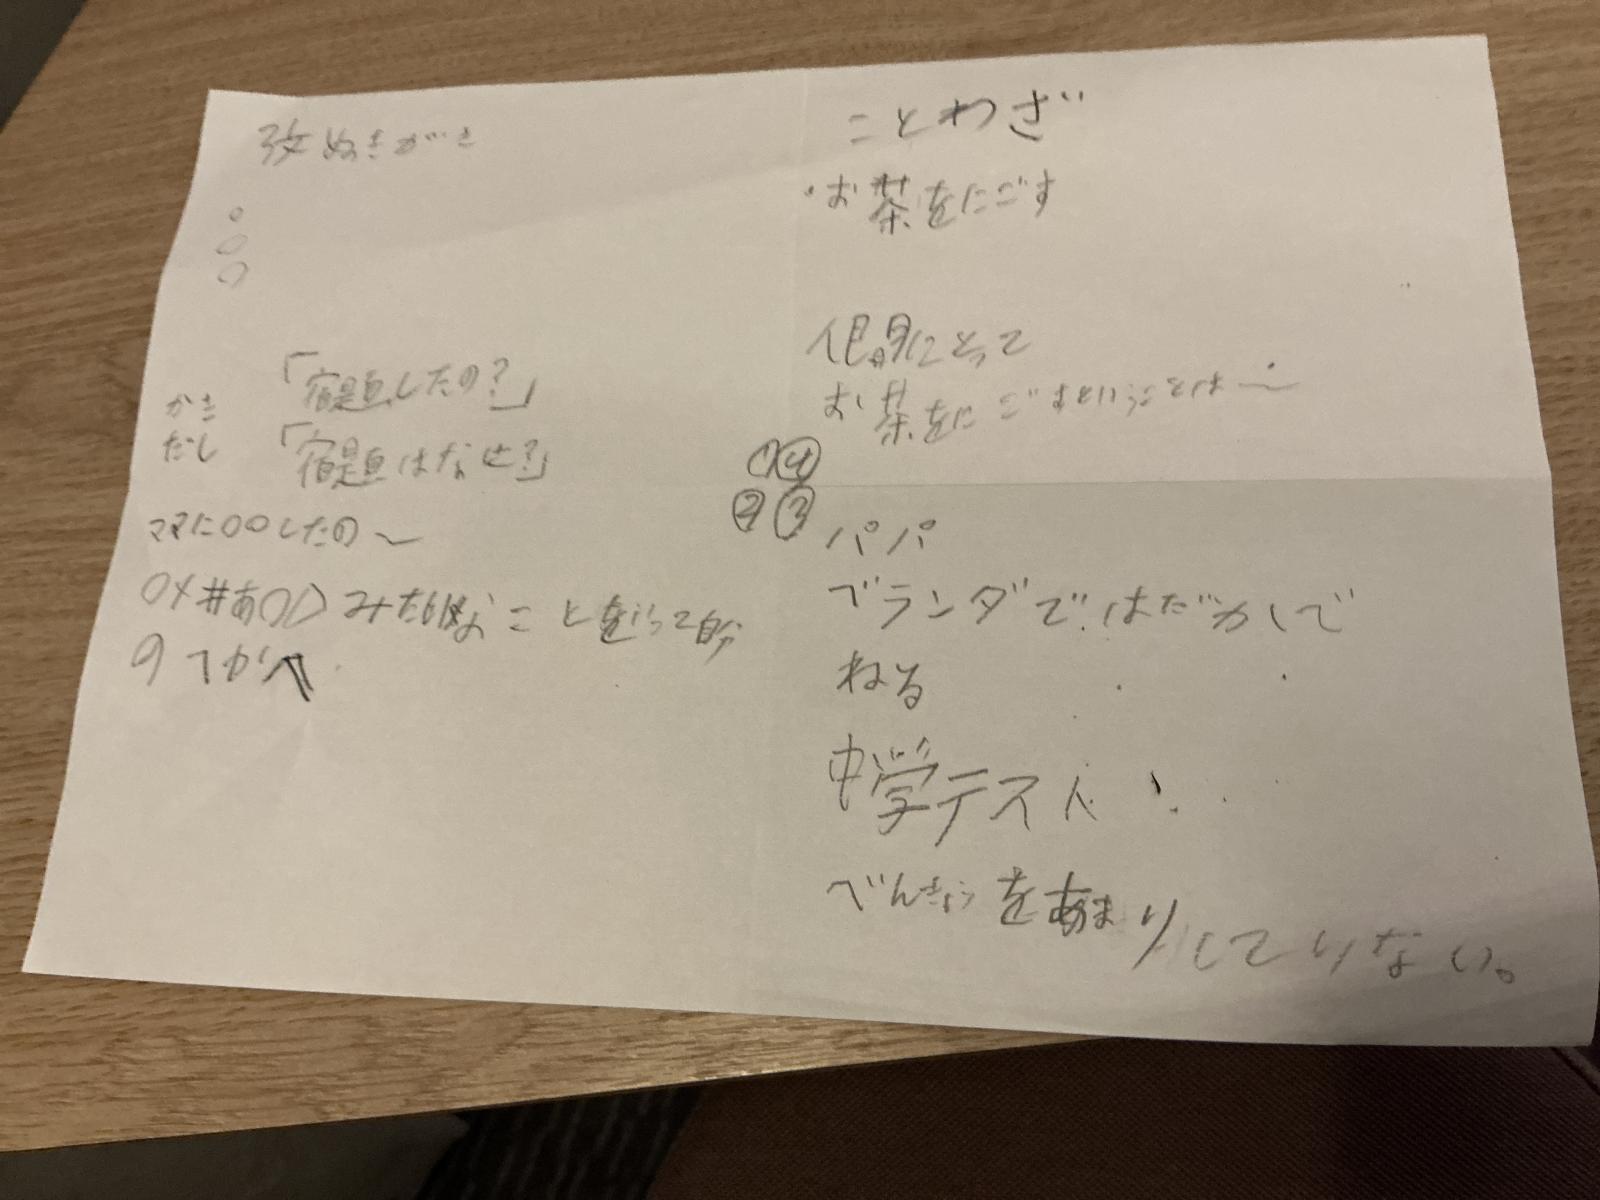 ことわざ
・お茶をにごす
にとって
お茶をにごすということは〜
パパ
ベランダではだかしで
ねる
中学テスト
べんきょうをあまりしてりない。
ぬきがき
○
○
○
かき
だし
「宿題したの?」
「宿題はなせ?」
ママに○○したの〜
みたいなことをいって
の
① ④
② ③